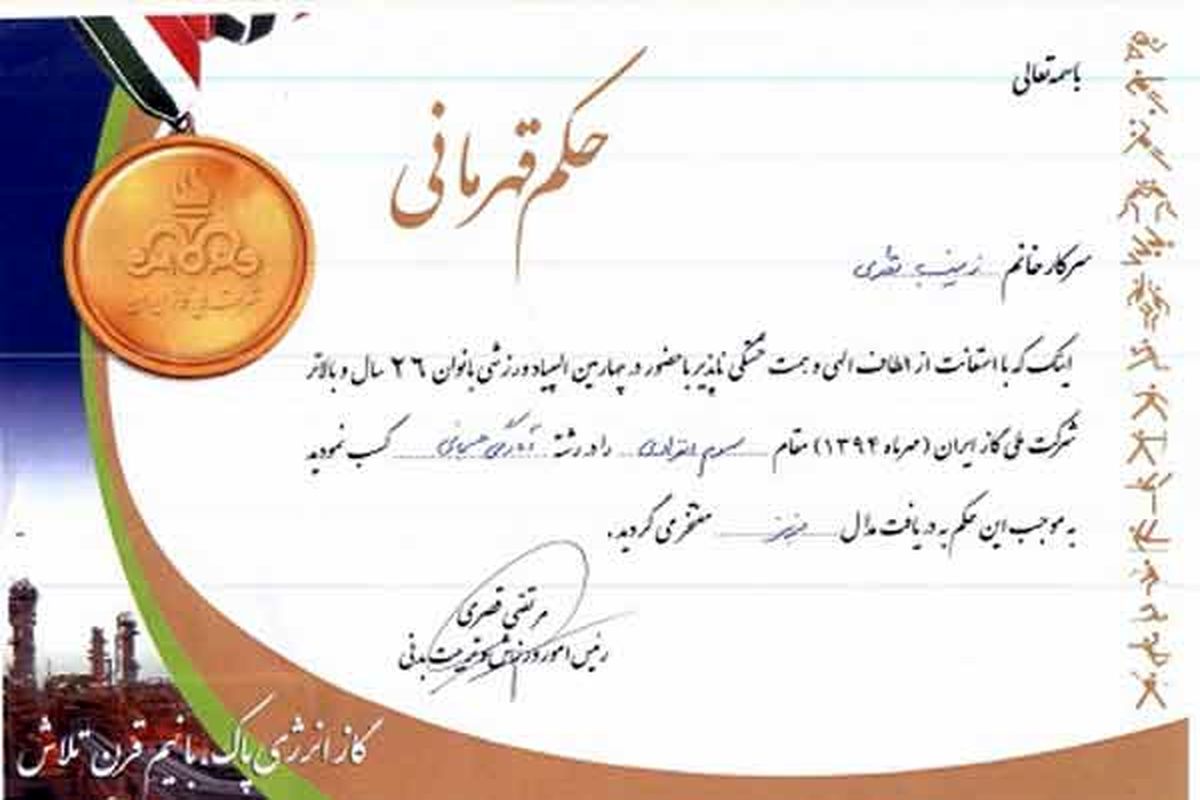 باسمه تعالی
حکم قهرمانی
سرکار خانم زینب نقدی
اینک که با استعانت از الطاف الهی و همت خستگی ناپذیر با حضور در چهارمین المپیاد ورزشی بانوان ۲۶ سال و بالاتر
شرکت ملی گاز ایران (مهرماه ۱۳۹۴) مقام سوم انفرادی را در رشته آمادگی جسمانی کسب نمودید
به موجب این حکم به دریافت مدال برنز مفتخر می گردید.
مرتضی قصری
رئیس امور ورزش و تربیت بدنی
شرکت ملی گاز ایران
گاز انرژی پاک، با نیم قرن تلاش